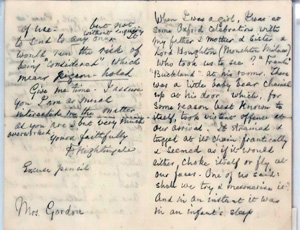 of use: but not
without inquiry
to trust to any man. It
would run the risk of
being "underhand" which
means
Give me time. I assure
you I am as much
interested in the matter
as you are & very much
overworked.
Yours faithfully
F Nightingale
Excuse pencil
Mrs. Gordon
When I was a girl, I was at
some Oxford Celebration with
my father & mother & sister &
Lord Houghton (Monckton Milnes)
who took us to see ? "Frank"
"Buckland" at his rooms. There
was a little baby bear chained
up at his door which, for
some reason best known to
itself, took violent offence at
our arrival. It strained &
tugged at its chain frantically
& seemed as if it would
either choke itself or fly at
our faces. One of us said:
shall we try & mesmerise it?
And in an instant it was
in an infant's sleep